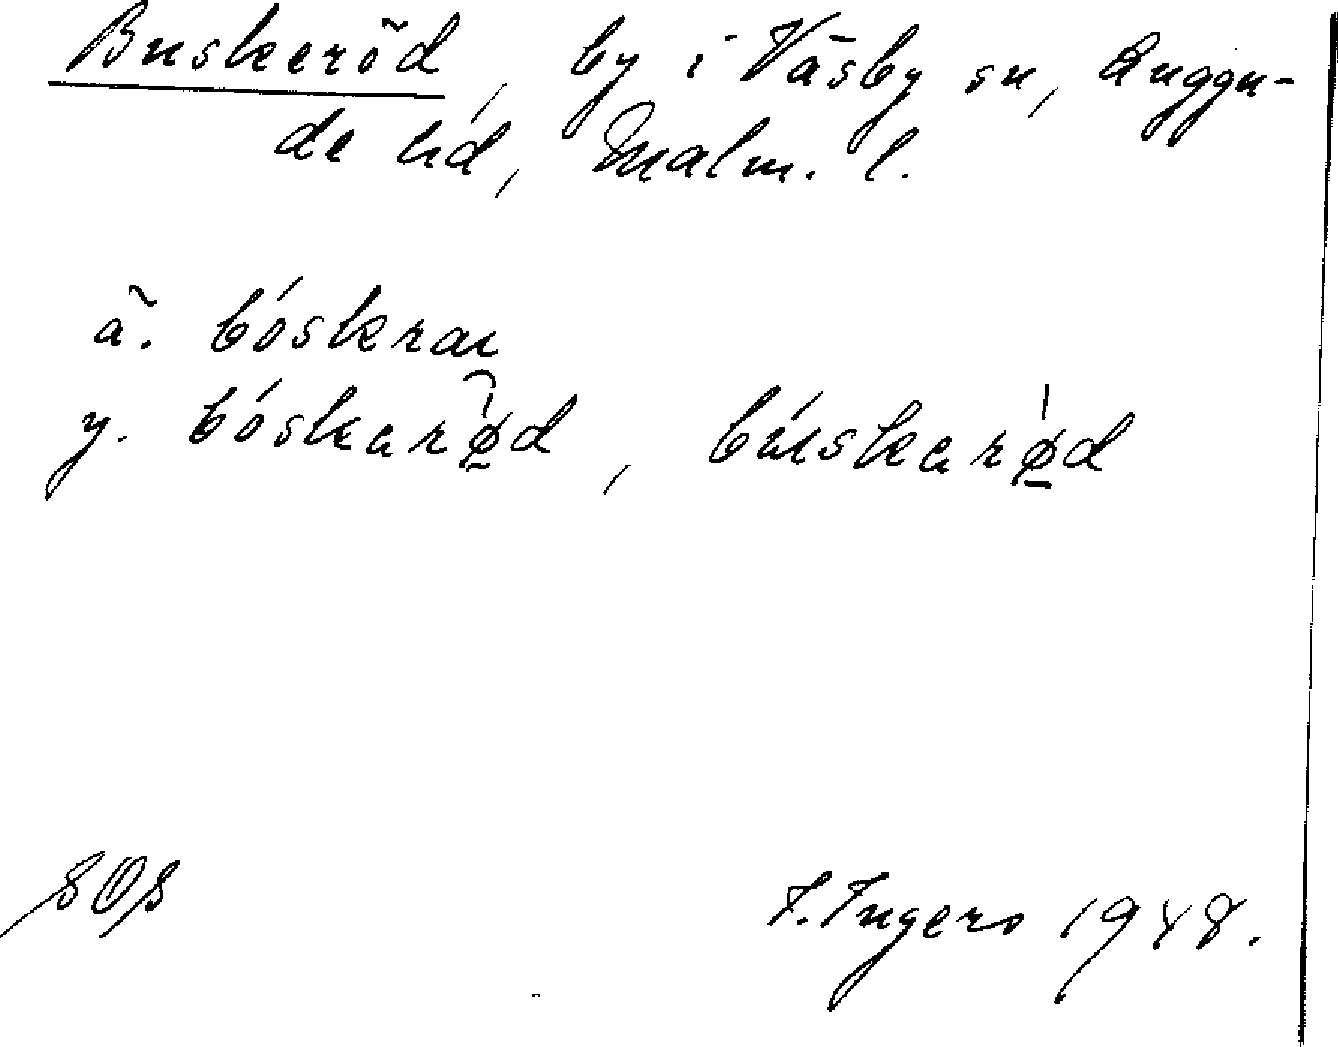 Buskeröd, by i Väsby sn, Luggu-
de hd, Malm. l.
ä. bóskrau
y. bóskarø̲d, búskarø̲d
SOS
I. Ingers 1948.